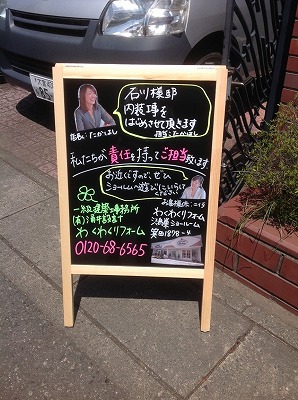 石川様邸
内装工事を
はじめさせて頂きます
店長:たかはし
担当:たかはし
私たちが責任を持ってご担当致します
お近くですので、ぜひ
ショールームへ遊びにいらして
ください
一級建築士事務所
わくわくリフォーム
わくわくリフォーム
ショールーム
1878-4
0120-68-6565